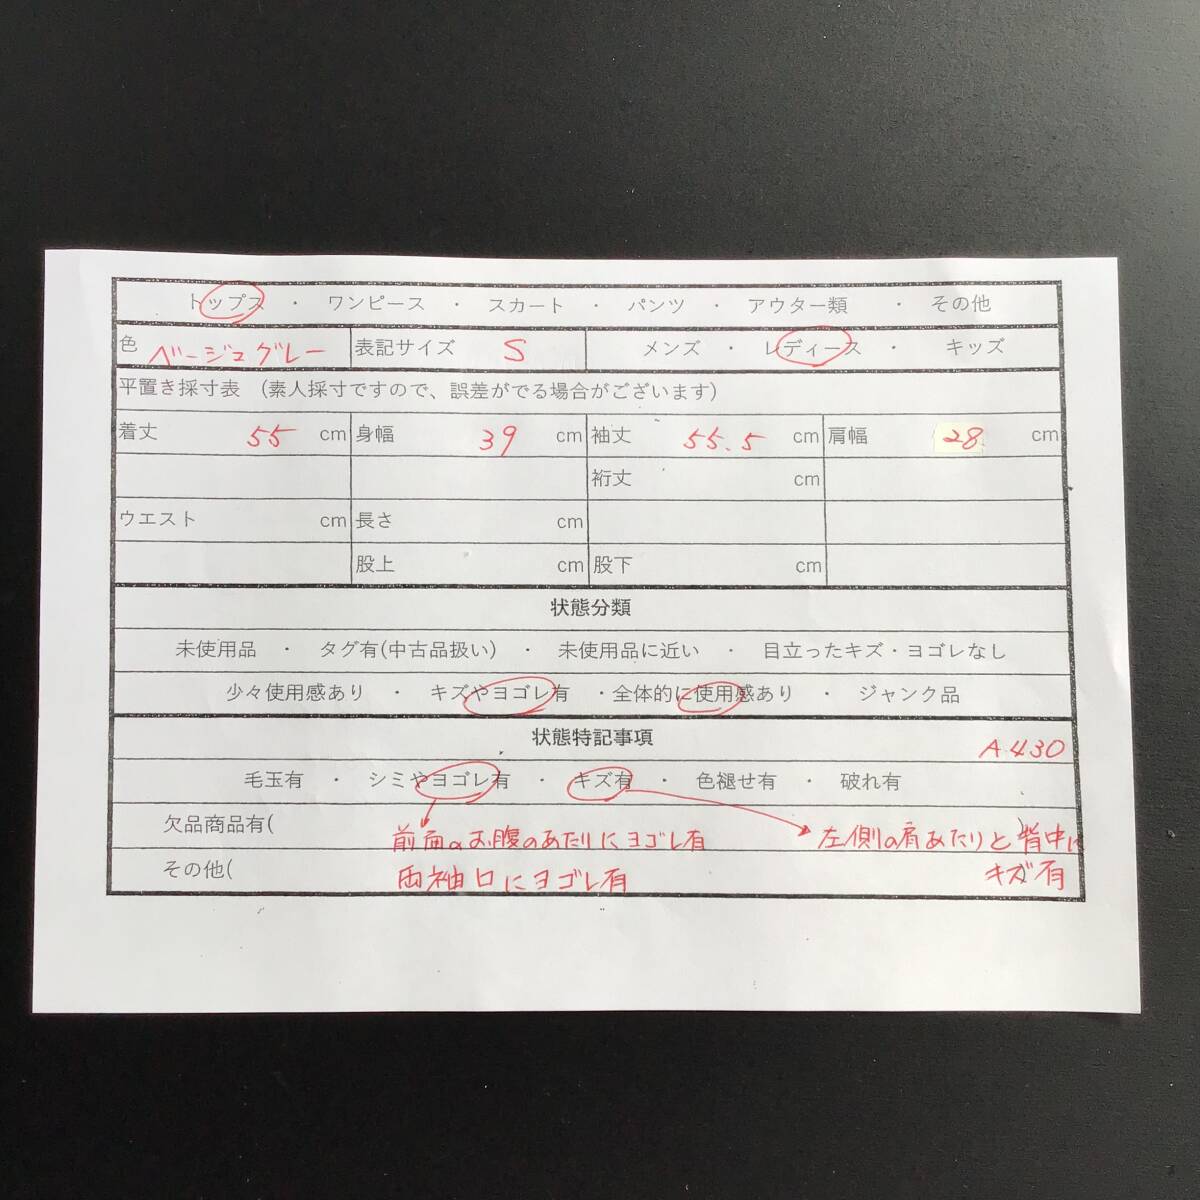 トップス ・ ワンピース ・ スカート ・ パンツ ・ アウター類 ・ その他
色 ベージュグレー 表記サイズ S メンズ ・ レディース ・ キッズ
平置き採寸表 (素人採寸ですので、誤差がでる場合がございます)
着丈 55 cm 身幅 39 cm 袖丈 55.5 cm 肩幅 28 cm
裄丈 cm
ウエスト cm 長さ cm
股上 cm 股下 cm
状態分類
未使用品 ・ タグ有(中古品扱い) ・ 未使用品に近い ・ 目立ったキズ・ヨゴレなし
少々使用感あり ・ キズやヨゴレ有 ・全体的に使用感あり ・ ジャンク品
状態特記事項 A430
毛玉有 ・ シミやヨゴレ有 ・ キズ有 ・ 色褪せ有 ・ 破れ有
欠品商品有( 前面のお腹のあたりにヨゴレ有 左側の肩あたりと背中に )
その他( 両袖口にヨゴレ有 キズ有